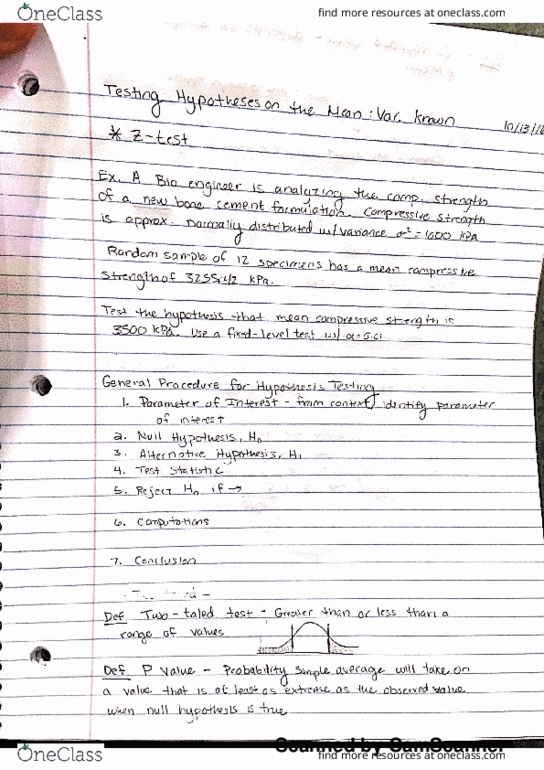 OneClass
find more resources at oneclass.com
Testing Hypotheses on the Mean : Var. known
10/13/
* Z-test
Ex. A Bio engineer is analyzing the comp. strength
of a new bone cement formulation. Compressive strength
is approx. normally distributed w/ variance σ² = 1000 kPa
Random sample of 12 specimens has a mean compressive
strength of 3255.42 kPa.
Test the hypothesis that mean compressive strength is
3500 kPa. Use a fixed-level test w/ α=0.01
General Procedure for Hypothesis Testing
1. Parameter of Interest - from context, identify parameter
of interest
2. Null Hypothesis, H₀
3. Alternative Hypothesis, H₁
4. Test Statistic
5. Reject H₀ if →
6. Computations
7. Conclusion
Def Two-taled test - Greater than or less than a
range of values
Def P value - Probability sample average will take on
a value that is at least as extreme as the observed value
when null hypothesis is true
Scanned by CamScanner
OneClass
find more resources at oneclass.com